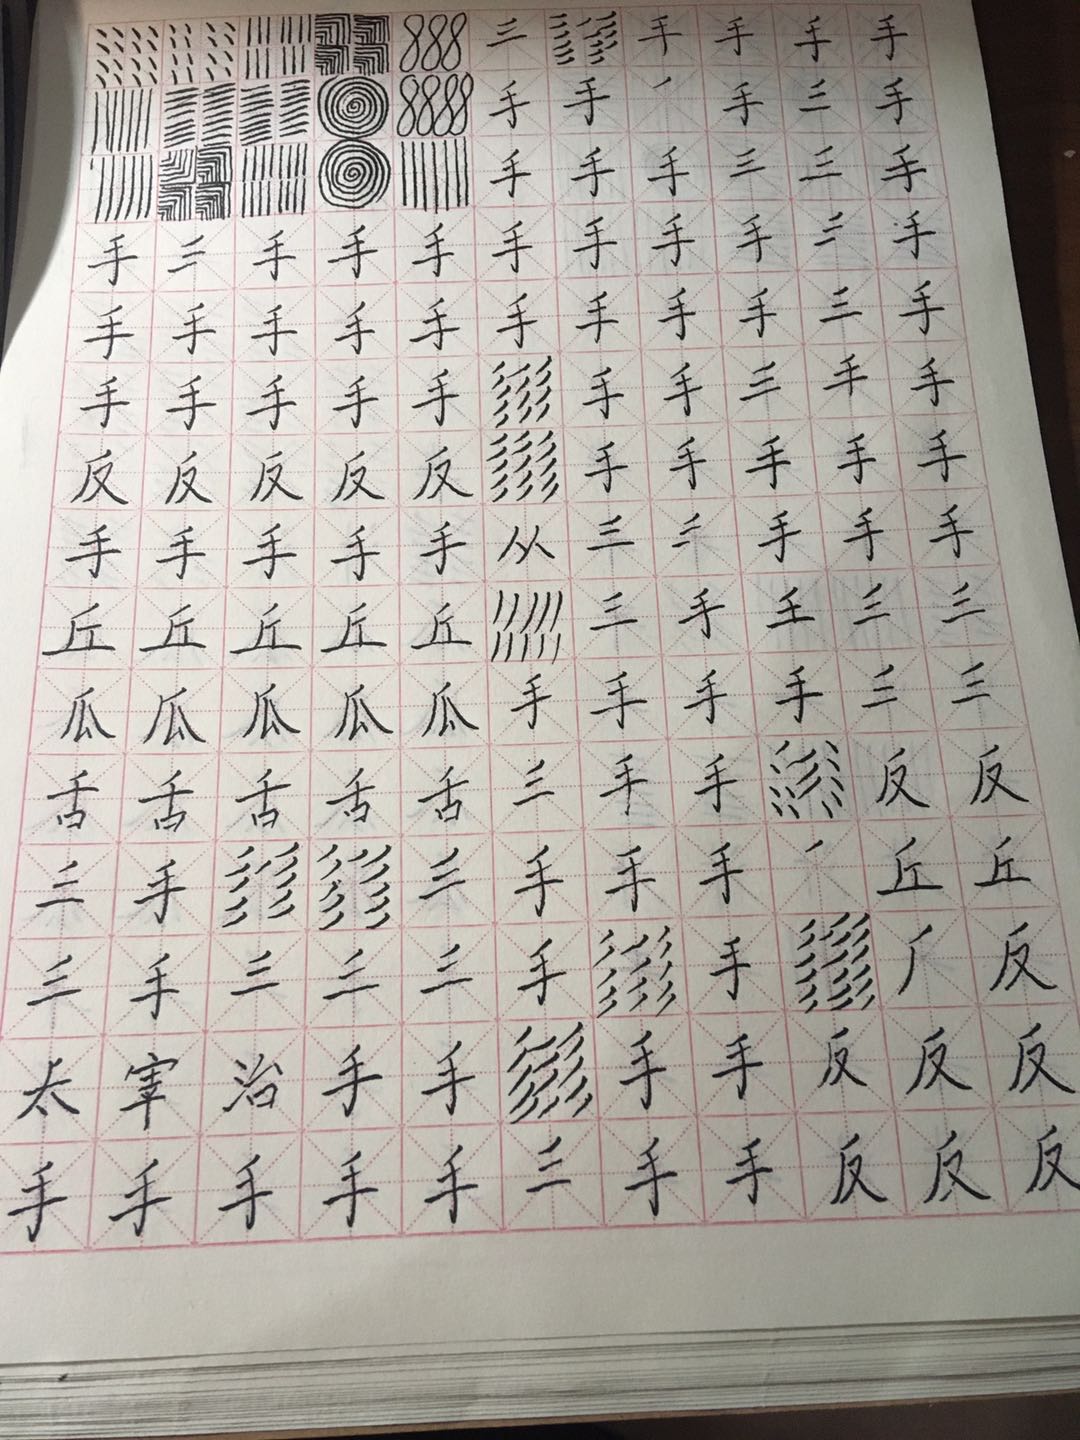 三 手 手 手 手
手 手 手 三 手
手 手 手 三 三 手
手 三 手 手 手 手 手 手 手 三 手
手 手 手 手 手 手 手 手 手 三 手
手 手 手 手 手 手 手 三 手 手
反 反 反 反 反 手 手 手 手 手
手 手 手 手 手 从 三 三 手 手 手
丘 丘 丘 丘 丘 三 手 王 三 三
瓜 瓜 瓜 瓜 瓜 手 手 手 手 三 三
舌 舌 舌 舌 舌 三 手 手 反 反
三 手 三 手 手 手 丘 丘
三 手 三 三 三 手 手 厂 反
太 宰 治 手 手 手 手 反 反 反
手 手 手 手 手 三 手 手 反 反 反